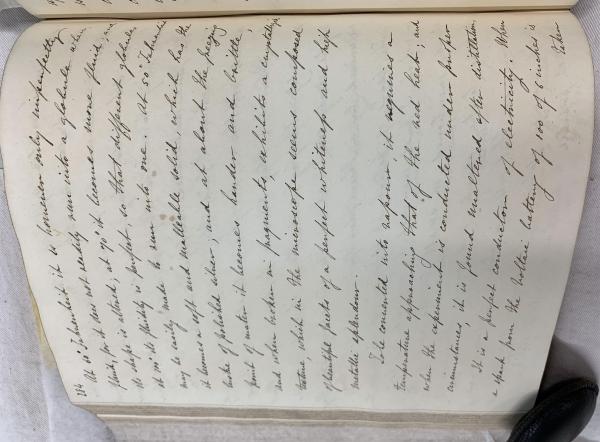 284
At 60° Fahrenheit it is however only imperfectly
fluid, for it does not readily run into a globule when
its shape is altered; at 70° it becomes more fluid; and
at 100° its fluidity is perfect, so that different globules
may be easily made to run into one. At 50° Fahrenheit
it becomes a soft and malleable solid, which has the
lustre of polished silver; and at about the freezing
point of water it becomes harder and brittle,
and when broken in fragments, exhibits a crystallized
texture, which in the microscope seems composed
of beautiful facets of a perfect whiteness and high
metallic splendour.
To be converted into vapour, it requires a
temperature approaching that of the red heat; and
when the experiment is conducted under proper
circumstances, it is found unaltered after distillation.
It is a perfect conductor of electricity. When
a spark from the Voltaic battery of 100 of 6 inches is
taken